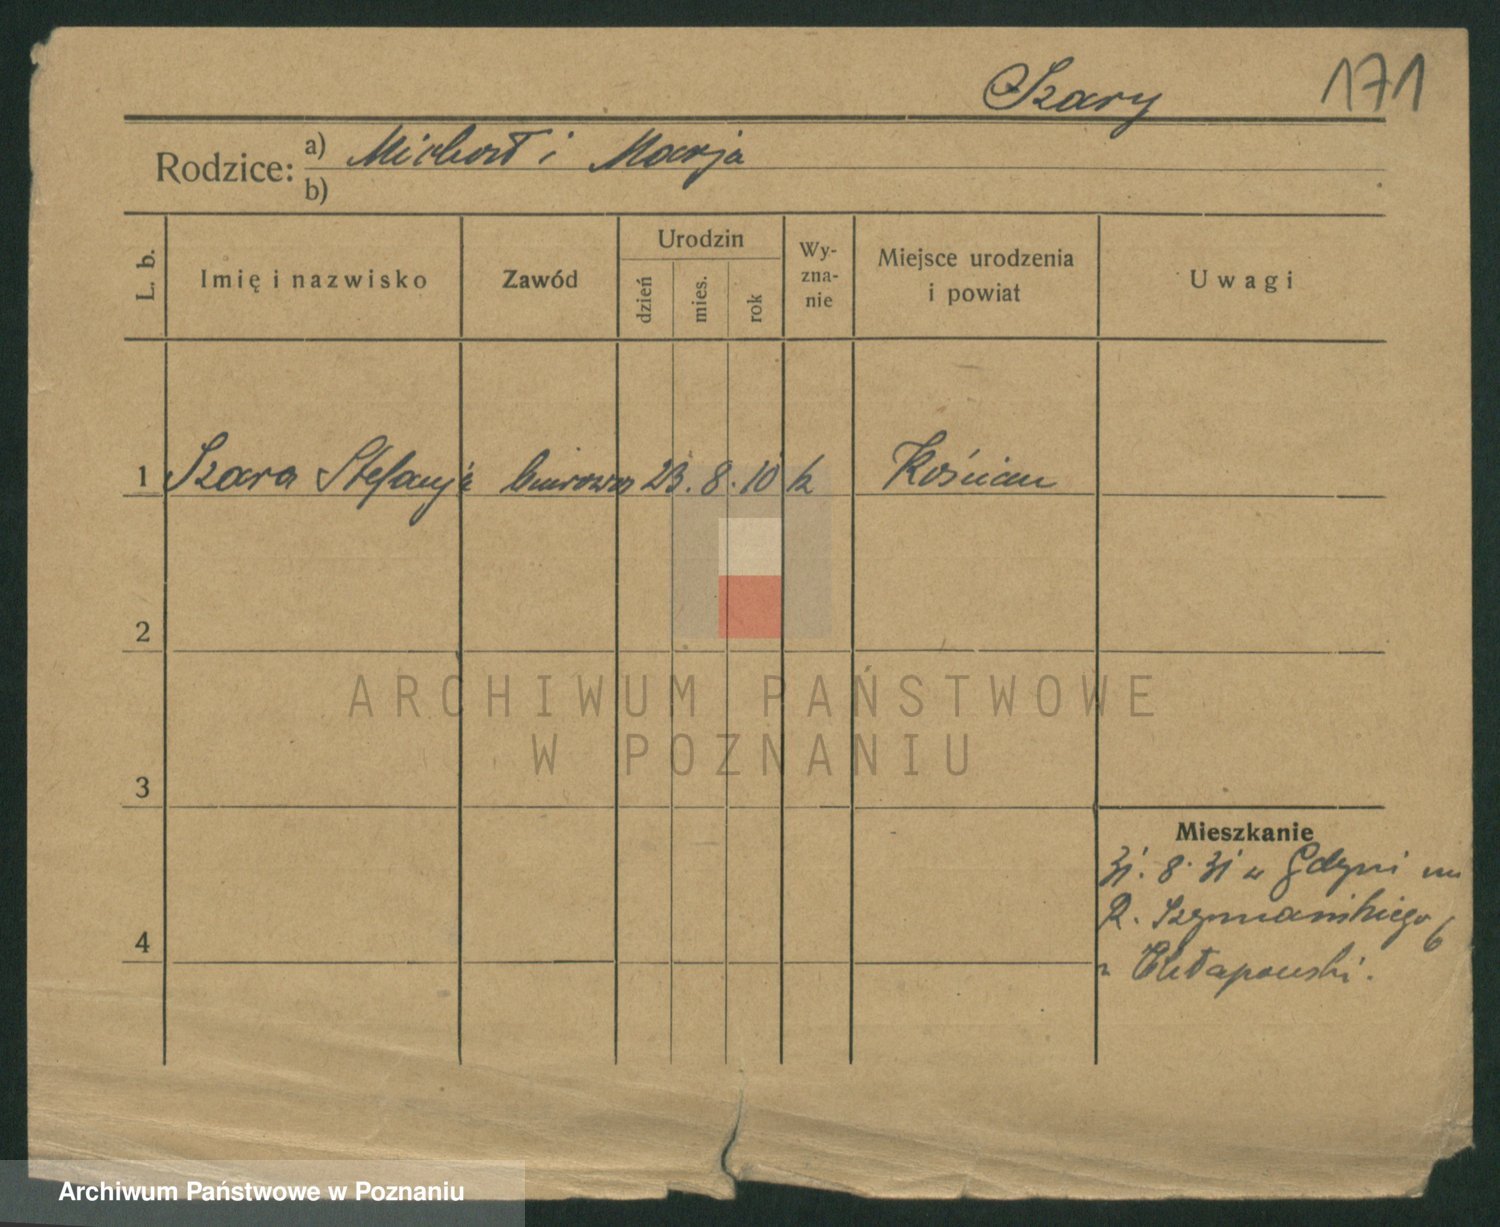 Szary 171
Rodzice: a) Michał i Marja
b)
L. b. Imię i nazwisko Zawód Urodzin dzień mies. rok Wy-zna-nie Miejsce urodzenia i powiat Uwagi
1 Szara Stefanja biurowa 23. 8. 10 k Kościan
2
ARCHIWUM PAŃSTWOWE
W POZNANIU
3
Mieszkanie
31. 8. 31 w Gdyni
Szymańskiego 6
4
Chłapowski.
Archiwum Państwowe w Poznaniu